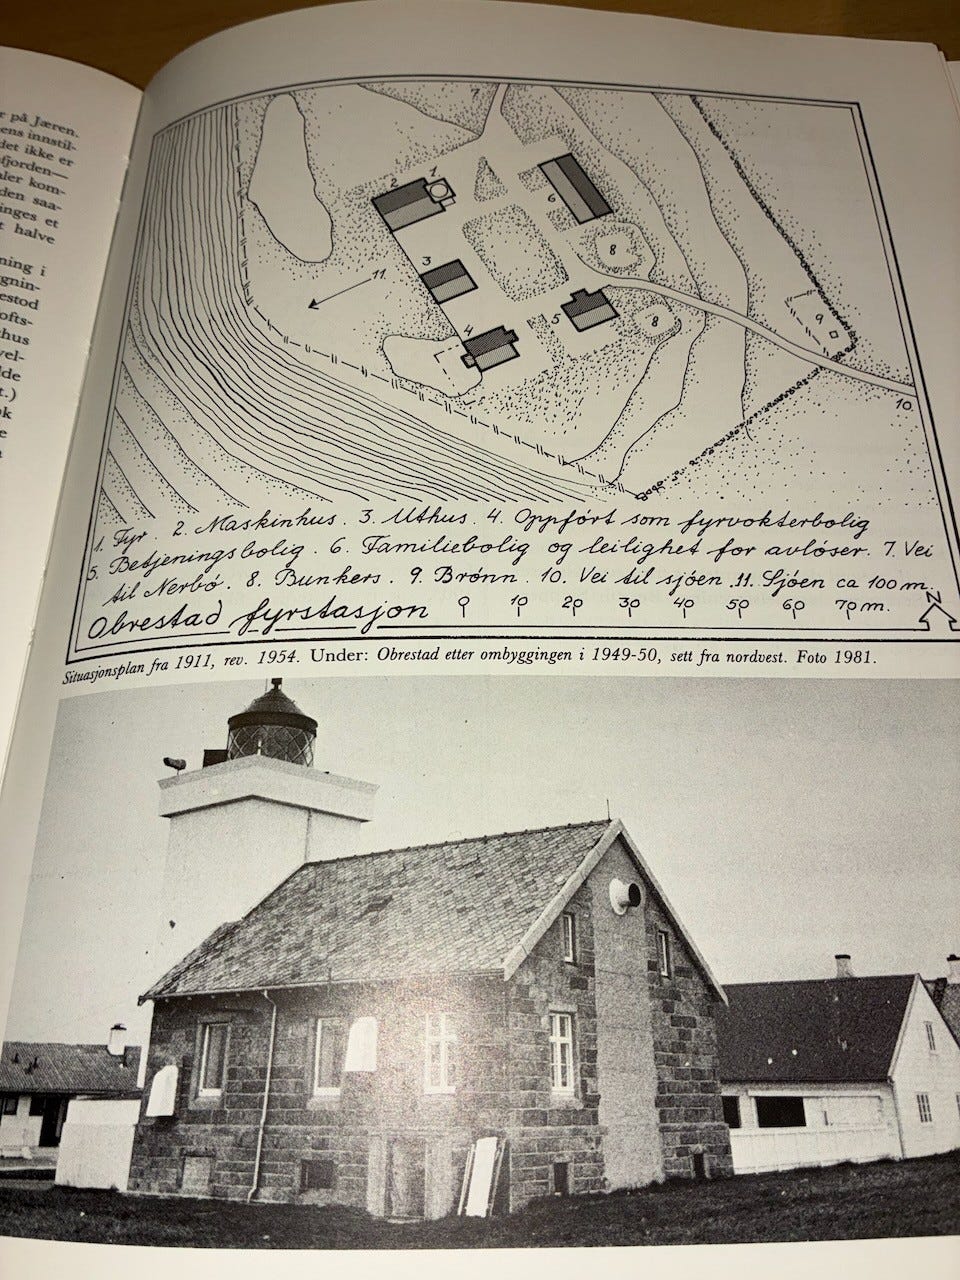 r på Jæren.
ens innstil-
det ikke er
fjorden—
aler kom-
den saa-
inges et
t halve
ning i
gnin-
estod
ofts-
thus
vel-
lde
t.)
ok
e
7
2
1
6
3
11
8
4
5
8
9
10
1. Fyr. 2. Maskinhus. 3. Uthus. 4. Oppført som fyrvokterbolig
5. Betjeningsbolig. 6. Familiebolig og leilighet for avløser. 7. Vei
til Nerbø. 8. Bunkers. 9. Brønn. 10. Vei til sjøen. 11. Sjøen ca 100 m.
Obrestad fyrstasjon 0 10 20 30 40 50 60 70 m. N
Situasjonsplan fra 1911, rev. 1954. Under: Obrestad etter ombyggingen i 1949-50, sett fra nordvest. Foto 1981.